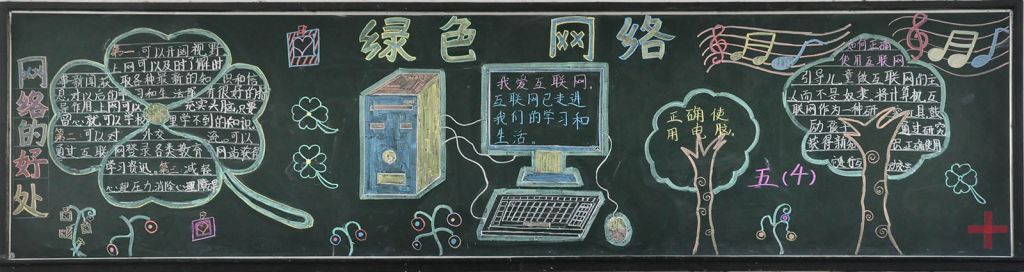 绿色 网络
网络的好处
第一可以开阔视野
上网可以及时了解时
事新闻获取各种最新的知识和信
息对以后的学习和生活
导作用上网可以充实头脑只要
留心就可以学校里学不到的知识
第二可以对外交流可以
通过互联网登录各类教育网站获各
学习资讯第三减轻
心理压力消除心理障碍
我爱互联网,
互联网已走进
我们的学习和
生活。
正确使
用电脑
五(4)
如何正确
使用互联网
引导儿童做互联网的主
人而不是奴隶将计算机互
联网作为一种
通过研究
获得新知 正确使用